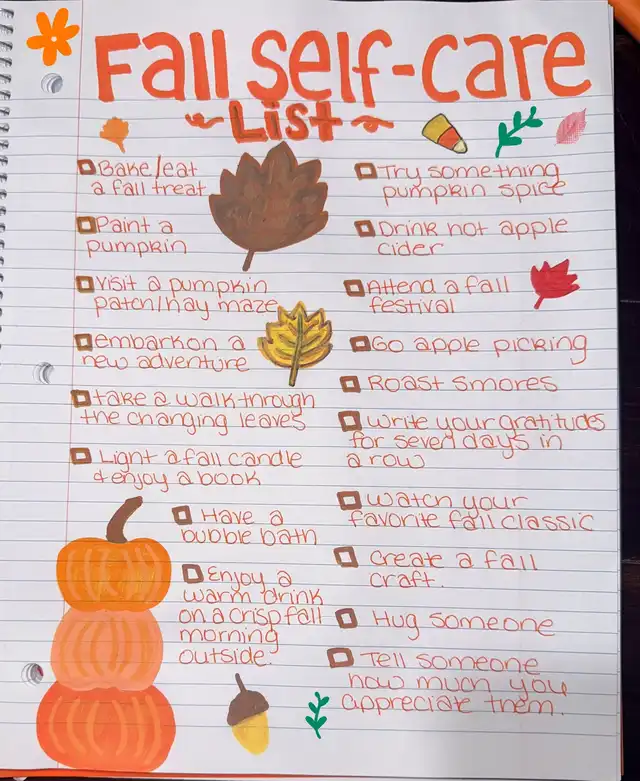 Fall self-care
List
Bake/eat
a fall treat
Paint a
pumpkin
Visit a pumpkin
patch/hay maze
embark on a
new adventure
take a walk through
the changing leaves
Light a fall candle
& enjoy a book
Have a
bubble bath
Enjoy a
warm drink
on a crisp fall
morning
outside.
Try something
pumpkin spice
Drink hot apple
cider
Attend a fall
festival
Go apple picking
Roast smores
write your gratitudes
for seven days in
a row
watch your
favorite fall classic
Create a fall
craft.
Hug someone
Tell someone
how much you
appreciate them.